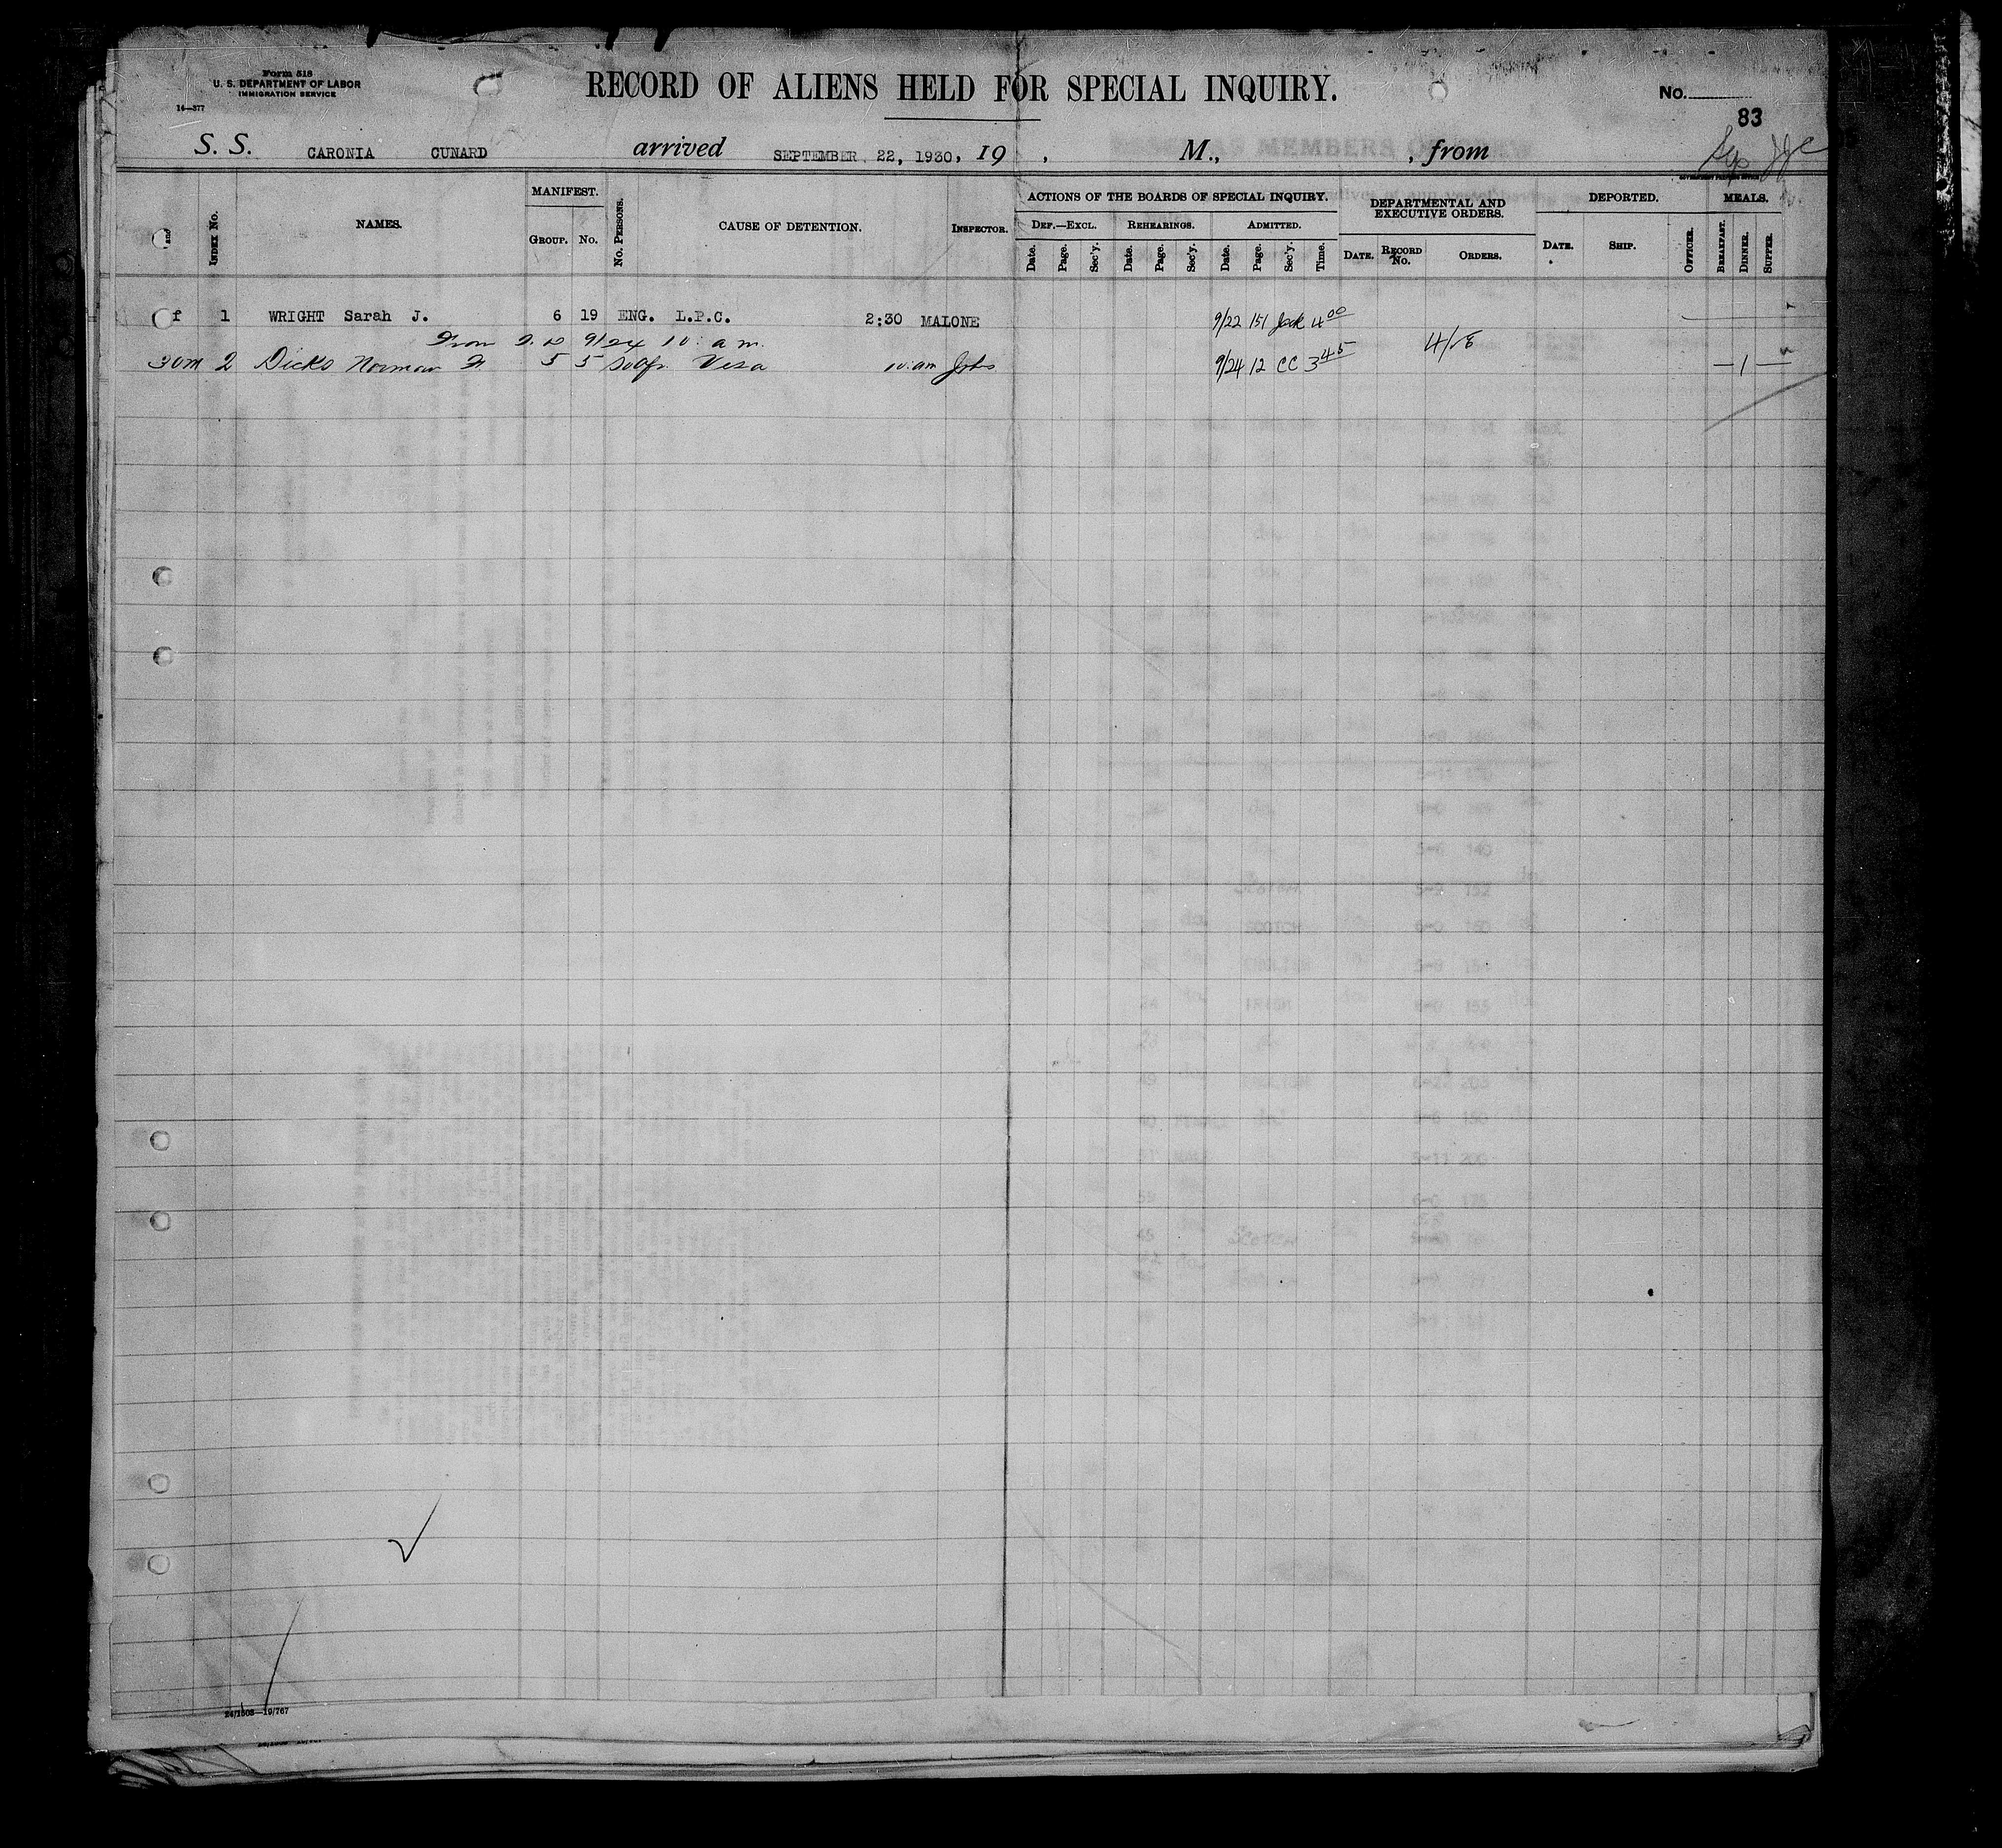 Form 518
U. S. DEPARTMENT OF LABOR
IMMIGRATION SERVICE
14—377
RECORD OF ALIENS HELD FOR SPECIAL INQUIRY.
No.
83
S. S. CARONIA CUNARD arrived SEPTEMBER 22, 1930, 19 , M., , from
INDEX No.
NAMES.
MANIFEST.
GROUP. No.
No. PERSONS.
CAUSE OF DETENTION.
INSPECTOR.
ACTIONS OF THE BOARDS OF SPECIAL INQUIRY.
DEF.—EXCL. REHEARINGS. ADMITTED.
Date. Page. Sec'y. Date. Page. Sec'y. Date. Page. Sec'y. Time.
DEPARTMENTAL AND EXECUTIVE ORDERS.
DATE. RECORD No. ORDERS.
DEPORTED.
DATE. SHIP.
OFFICER.
MEALS.
BREAKFAST. DINNER. SUPPER.
f 1 WRIGHT Sarah J. 6 19 ENG. L.P.C. 2:30 MALONE 9/22 151 Jack 4 00
From 9/24 10: a m.
30m 2 Dicks Norman 5 5 SoAfr. Visa 10: am 9/24 12 CC 3 45 — 1 —
24/1508—19/767